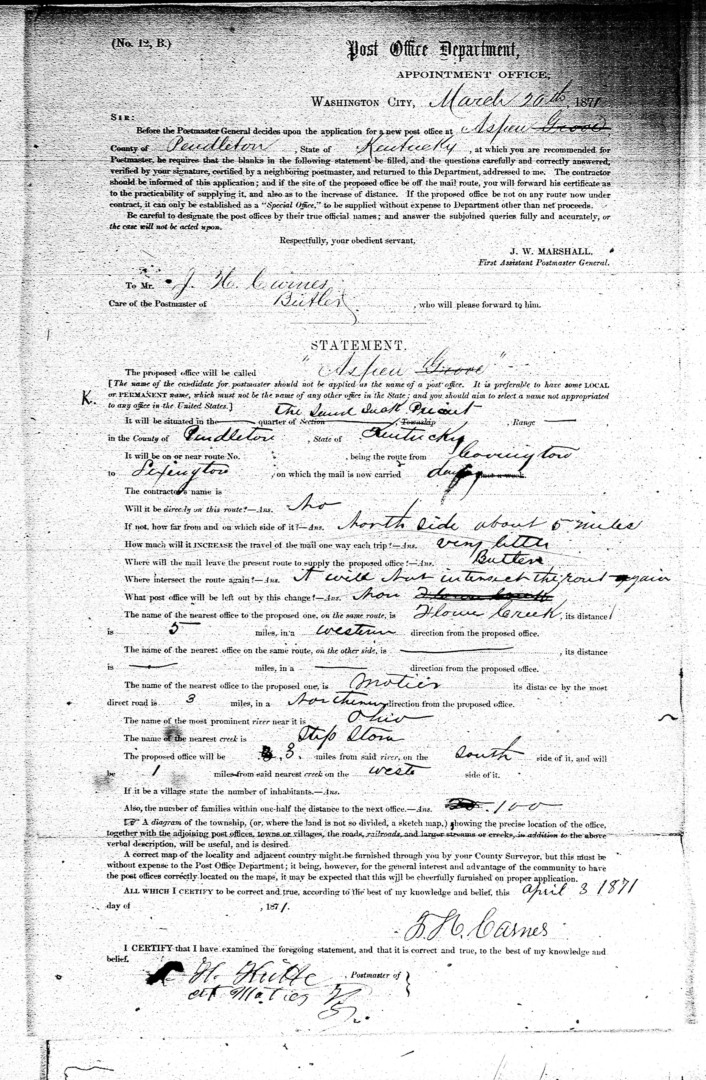 (No. 12, B.)
Post Office Department,
APPOINTMENT OFFICE,
WASHINGTON CITY, March 20th, 1871
SIR:
Before the Postmaster General decides upon the application for a new post office at Aspen Grove
County of Pendleton, State of Kentucky, at which you are recommended for
Postmaster, he requires that the blanks in the following statement be filled, and the questions carefully and correctly answered,
verified by your signature, certified by a neighboring postmaster, and returned to this Department, addressed to me. The contractor
should be informed of this application; and if the site of the proposed office be off the mail route, you will forward his certificate as
to the practicability of supplying it, and also as to the increase of distance. If the proposed office be not on any route now under
contract, it can only be established as a "Special Office," to be supplied without expense to Department other than net proceeds.
Be careful to designate the post offices by their true official names; and answer the subjoined queries fully and accurately, or
the case will not be acted upon.
Respectfully, your obedient servant,
J. W. MARSHALL,
First Assistant Postmaster General.
To Mr. J. H. Carnes
Care of the Postmaster of Butler, who will please forward to him.
STATEMENT.
The proposed office will be called "Aspen Grove"
[The name of the candidate for postmaster should not be applied as the name of a post office. It is preferable to have some LOCAL
K. or PERMANENT name, which must not be the name of any other office in the State; and you should aim to select a name not appropriated
to any office in the United States.]
It will be situated in the quarter of Section, Township, Range
in the County of Pendleton, State of Kentucky
It will be on or near route No. , being the route from Covington
to Lexington, on which the mail is now carried
The contractor's name is
Will it be directly on this route?—Ans. No
If not, how far from and on which side of it?—Ans. North side about 5 miles
How much will it INCREASE the travel of the mail one way each trip?—Ans. very little
Where will the mail leave the present route to supply the proposed office?—Ans. Butler
Where intersect the route again?—Ans. it will Not intersect the rout again
What post office will be left out by this change?—Ans. Non
The name of the nearest office to the proposed one, on the same route, is Flour Creek, its distance
is 5 miles, in a western direction from the proposed office.
The name of the nearest office on the same route, on the other side, is , its distance
is miles, in a direction from the proposed office.
The name of the nearest office to the proposed one, is Motier its distance by the most
direct road is 3 miles, in a Northern direction from the proposed office.
The name of the most prominent river near it is Ohio
The name of the nearest creek is Step Stom
The proposed office will be 3 miles from said river, on the South side of it, and will
be 1 miles from said nearest creek on the west side of it.
If it be a village state the number of inhabitants.—Ans.
Also, the number of families within one-half the distance to the next office.—Ans. 100
☞ A diagram of the township, (or, where the land is not so divided, a sketch map,) showing the precise location of the office,
together with the adjoining post offices, towns or villages, the roads, railroads, and larger streams or creeks, in addition to the above
verbal description, will be useful, and is desired
A correct map of the locality and adjacent country might be furnished through you by your County Surveyor, but this must be
without expense to the Post Office Department; it being, however, for the general interest and advantage of the community to have
the post offices correctly located on the maps, it may be expected that this will be cheerfully furnished on proper application.
ALL WHICH I CERTIFY to be correct and true, according to the best of my knowledge and belief, this april 3 1871
day of , 1871.
J. H. Carnes
I CERTIFY that I have examined the foregoing statement, and that it is correct and true, to the best of my knowledge and
belief.
H. , Postmaster of
at Motier Ky.